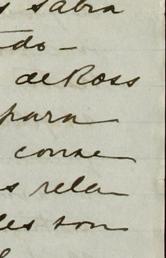 s sabra
tado -
de Ross
para
conse
s rela
des son